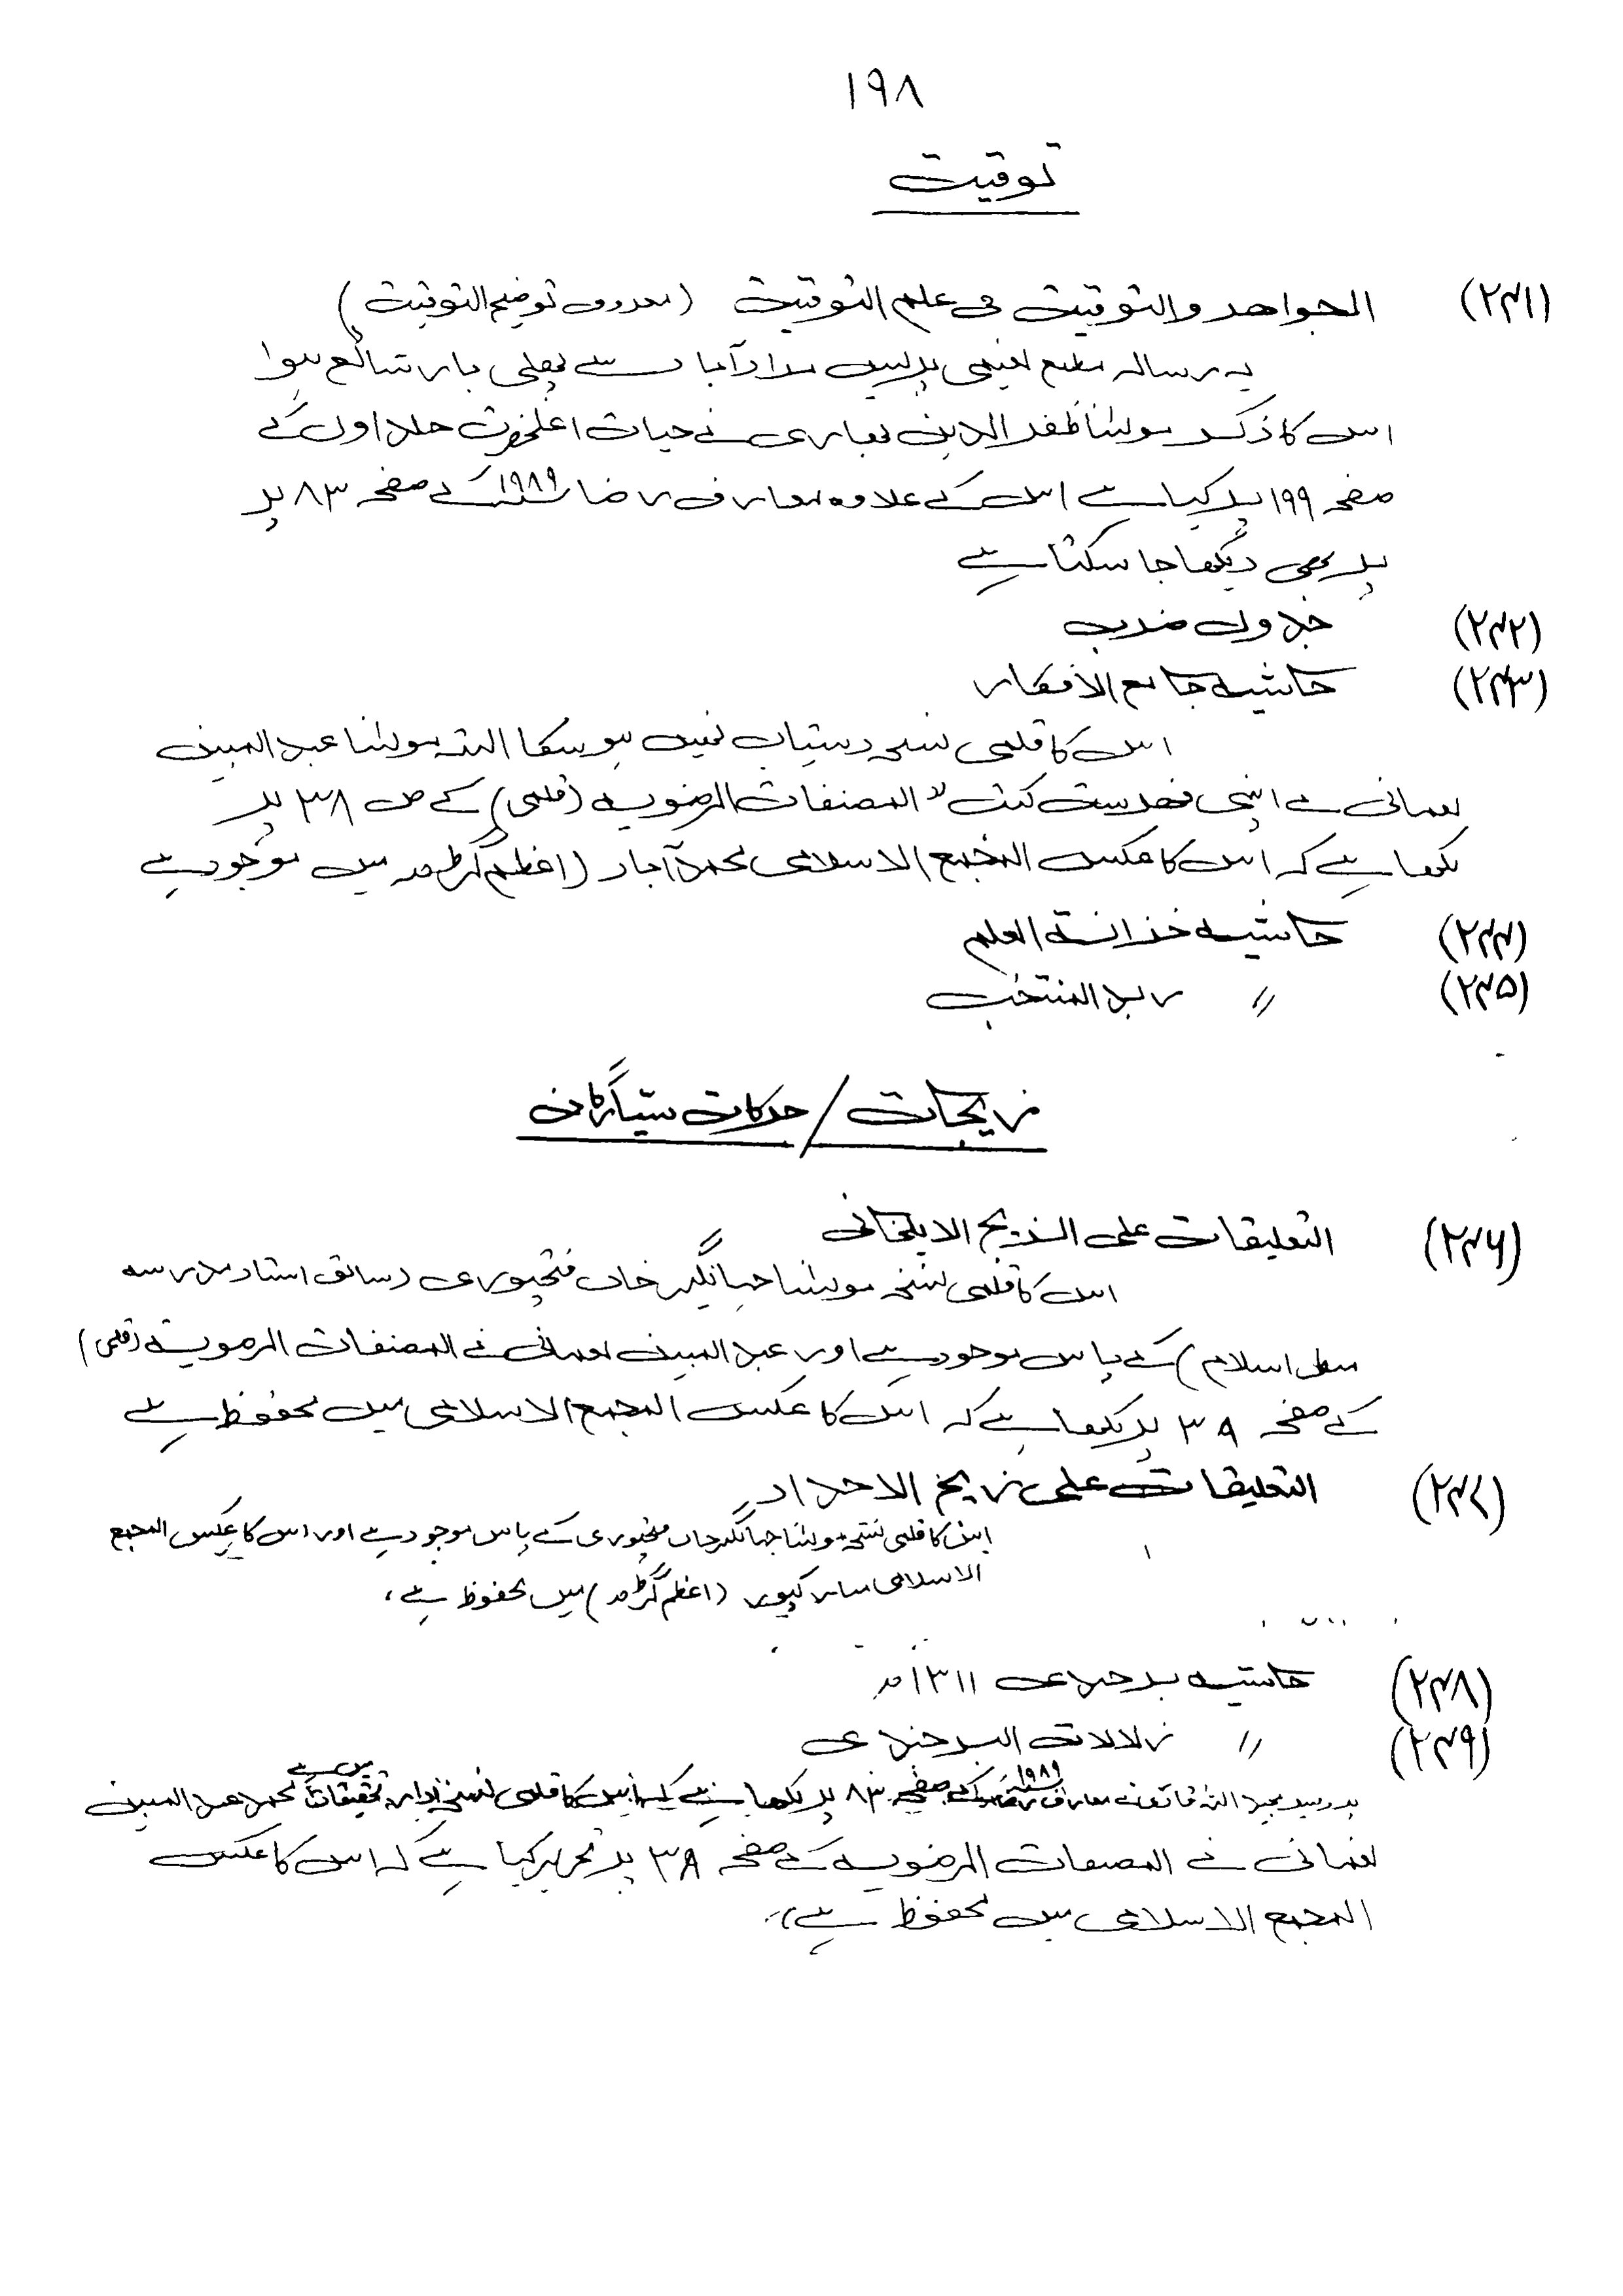 ۱۹۸
توقیت
(۲۴۱) الجواھر والتوقیت فی علم التوقیت (معروف توضیح التوقیت)
یہ رسالہ مطبع نعیمی پریس مرادآباد سے پھلی بار شائع ہوا
اس کا ذکر مولٰنا ظفر الدین بھاری نے حیات اعلحضرت جلد اول کے
صفحہ ۱۹۹ پر کیا ہے اس کے علاوہ معارف رضا ۱۹۸۹ کے صفحہ ۸۳ پر
پر بھی دیکھا جا سکتا ہے
(۲۴۲) جدول ضرب
(۲۴۳) حاشیہ جامع الافکار
اس کا قلمی نسخہ دستیاب نہیں ہو سکا البتہ مولٰنا عبدالمبین
نعمانی نے اپنی فھرست کتب "المصنفات الرضویہ (قلمی) کے ص ۳۸ پر
لکھا ہے کہ اس کا عکس المجمع الاسلامی محمدآباد (اعظم گڑھ میں موجود ہے
(۲۴۴) حاشیہ خزانۃ العلم
(۲۴۵) " زبد المنتخب
زیجات / حرکات سیّارگان
(۲۴۶) التعلیقات علی الزیج الایلخانی
اس کا قلمی نسخہ مولٰنا جہانگیر خاں فتحپوری (سابق استاد مدرسہ
منظر اسلام) کے پاس موجود ہے اور عبدالمبین نعمانی نے المصنفات الرضویۃ (قلمی)
کے صفحہ ۳۸ پر لکھا ہے کہ اس کا عکس المجمع الاسلامی میں محفوظ ہے
(۲۴۷) التعلیقات علی زیج الاجداد
اس کا قلمی نسخہ مولٰنا جہانگیر خاں فتحپوری کے پاس موجود ہے اور اس کا عکس المجمع
الاسلامی مبارکپور (اعظم گڑھ) میں محفوظ ہے،
(۲۴۸) حاشیہ برجندی ۱۳۱۱ھ
(۲۴۹) " زلالات البرجندی
پروفیسر مجید اللہ قادری نے معارف رضا ۱۹۸۹ کے صفحہ ۸۳ پر لکھا ہے کہ اس کا قلمی نسخہ ادارہ تحقیقات میں ہے محمد عبدالمبین
نعمانی نے المصنفات الرضویہ کے صفحہ ۳۸ پر تحریر کیا ہے کہ اس کا عکس
المجمع الاسلامی میں محفوظ ہے،